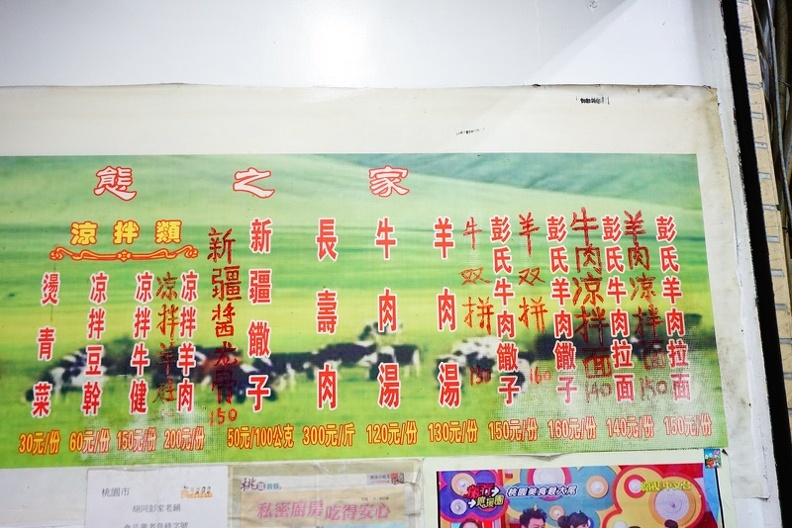 態之家
涼拌類
彭氏羊肉拉面
150元/份
羊肉涼拌面
150
彭氏牛肉拉面
140元/份
牛肉涼拌面
140
彭氏羊肉饊子
160元/份
羊双拼
160
彭氏牛肉饊子
150元/份
牛双拼
150
羊肉湯
130元/份
牛肉湯
120元/份
長壽肉
300元/斤
新疆饊子
50元/100公克
新疆醬龙骨
150
涼拌羊肉
200元/份
涼拌羊
涼拌牛健
150元/份
涼拌豆幹
60元/份
燙青菜
30元/份
桃園市
桃園
私密廚房 吃得安心
桃園美食最大尾